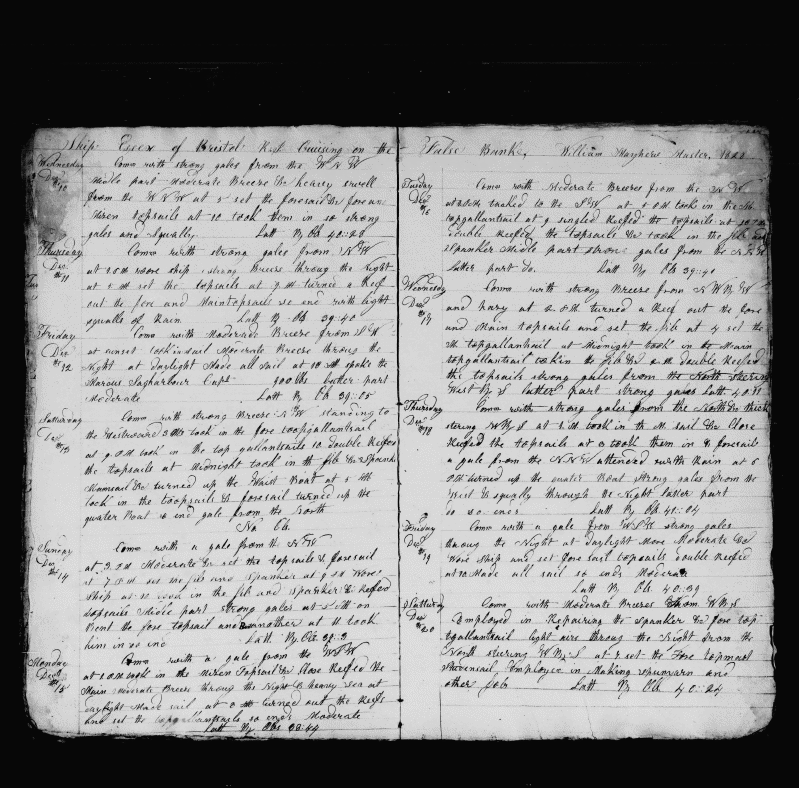 Ship Essex of Bristol R.I. Cruising on the
Wednesday
Dec
10
Coms with strong gales from the W N W
Midle part Moderate Breeze & heavey swell
from the W N W at 5 set the foresail & fore an
Mizen topsails at 10 took them in so strong
gales and Squalley Latt By Ob 40:28
Thursday
Dec
11
Coms with strong gales from N W
at wore ship strong Breeze throug the Night
at set the topsails at turned a Reef
out the fore and Maintopsails so end with light
squalls of Rain Latt By Ob 39:40
Friday
Dec
12
Coms with Moderate Breeze from S W
at sunset took in sail Moderate Breeze throug the
Night at daylight Made all sail at 10 AM spoke the
Marcus Sagharbour Capt 300 bbls latter part
Moderate Latt By Ob 39:05
Saturday
Dec
13
Coms with strong Breeze N W standing to
the Westward took in the fore topgallantsail
at 9 took in the top gallantsails 10 double Reefed
the topsails at Midnight took in the fib & Spanker
Mainsail & turned up the Waist Boat at 5 AM
took in the topsails & foresail turned up the
quater Boat so end gale from the North
No Ob
Sunday
Dec
14
Coms with a gale from the N W
at 3 Moderate & set the topsails & foresail
at 7 set the fib and Spanker at 9 Wore
Ship at 12 took in the fib and Spanker & Reefed
topsails Midle part strong gales at
Rent the fore topsail and another at 11 took
him in so end Latt By Ob 39:3
Monday
Dec
15
Coms with a gale from the W S W
at 1 took in the Mizen Topsail & Close Reefed the
Main Moderate Breeze throug the Night & heavy Sea at
daylight Made sail at turned out the Reefs
and set the topgallantsails so ends Moderate
Latt By Obs 39:44
False Banks, William Mayhew Master, 18
Tuesday
Dec
16
Coms with Moderate Breeze from the W
at tacked to the S W at 5 took in the M
topgallantsail at 9 singled Reefed the topsails at 10
double Reefed the topsails & took in the fib and
Spanker Midle part strong gales from the N
Latter part Do. Latt By Ob 39:41
Wednesday
Dec
17
Coms with strong Breeze from N W B W
and hazy at turned a Reef out the fore
and Main topsails and set the fib at 4 set the
M topgallantsail at Midnight took in the Main
topgallantsail took in the fib & double Reefed
the topsails strong gales from the North Steering
West B S Latter part strong gales Latt 40:31
Thursday
Dec
18
Coms with strong gales from the North thick
stering W B S at took in the M sail & Close
Reefed the topsails at took them in & foresails
a gale from the N N W attended with Rain at 6
turned up the quater Boat strong gales from the
West & squaly through the Night Latter part
so so ends Latt By Ob 41:04
Friday
Dec
19
Coms with a gale from W S W strong gales
throug the Night at daylight More Moderate &
Wore Ship and set fore sail topsails double Reefed
at 10 Made all sail so ends Moderate
Latt By Ob 40:39
Saturday
Dec
20
Coms with Moderate Breeze from W B N
Employed in Repairing the Spanker & fore top
gallantsail light airs throug the Night from the
North steering W B S at 7 set the Fore topmast
Stevensail Employed in Making Spunyarn and
other fob Latt By Ob 40:24